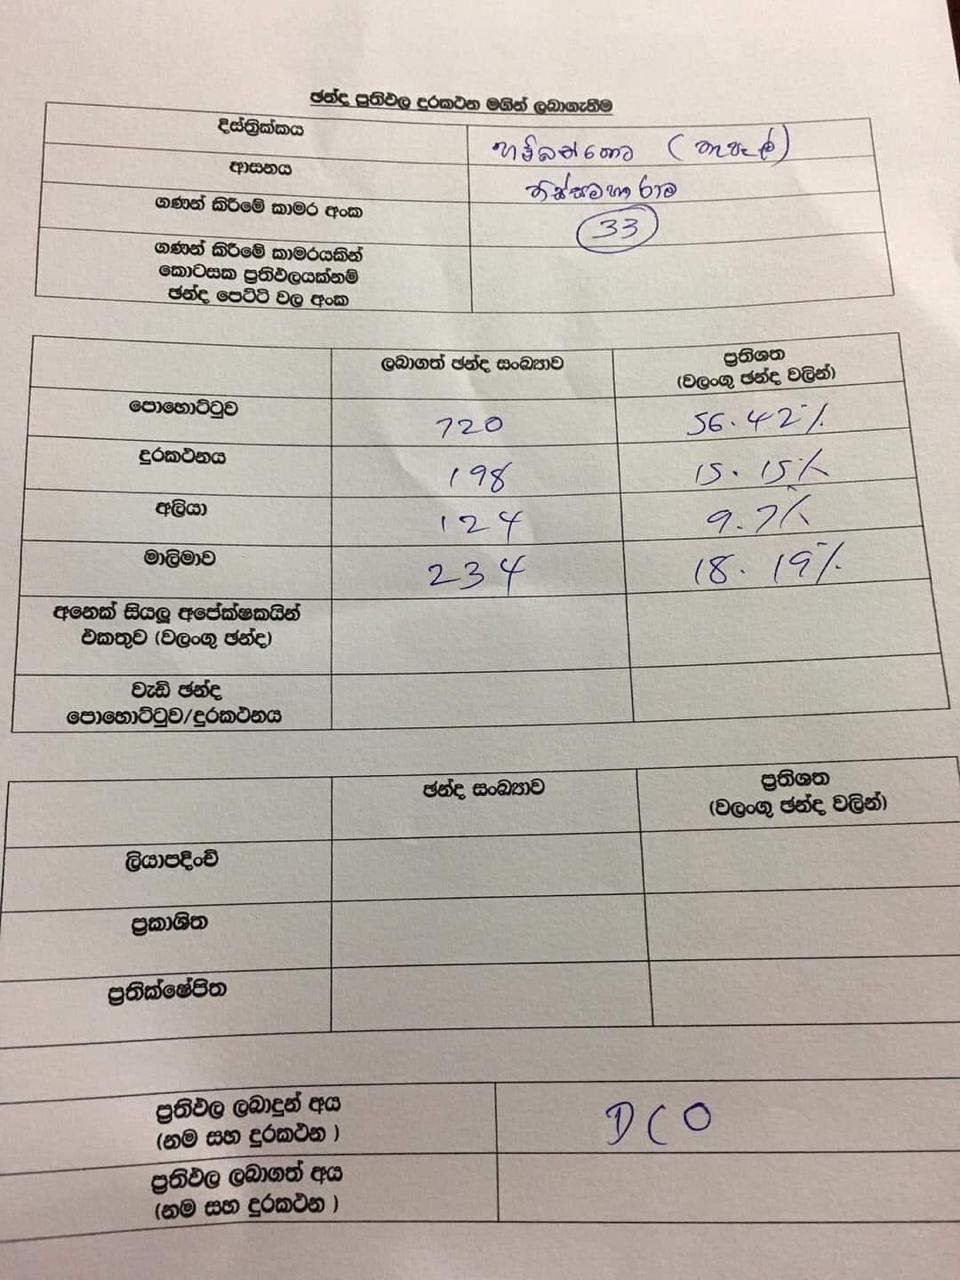 ඡන්ද ප්‍රතිඵල දුරකථන මගින් ලබාගැනීම
දිස්ත්‍රික්කය හම්බන්තොට (තැපැල්)
ආසනය තිස්සමහාරාම
ගණන් කිරීමේ කාමර අංක 33
ගණන් කිරීමේ කාමරයකින්
කොටසක ප්‍රතිඵලයක්නම්
ඡන්ද පෙට්ටි වල අංක
ලබාගත් ඡන්ද සංඛ්‍යාව ප්‍රතිශත
(වලංගු ඡන්ද වලින්)
පොහොට්ටුව 720 56.42%
දුරකථනය 198 15.15%
අලියා 124 9.7%
මාලිමාව 234 18.19%
අනෙක් සියලූ අපේක්ෂකයින්
එකතුව (වලංගු ඡන්ද)
වැඩි ඡන්ද
පොහොට්ටුව/දුරකථනය
ඡන්ද සංඛ්‍යාව ප්‍රතිශත
(වලංගු ඡන්ද වලින්)
ලියාපදිංචි
ප්‍රකාශිත
ප්‍රතික්ෂේපිත
ප්‍රතිඵල ලබාදුන් අය DCO
(නම සහ දුරකථන )
ප්‍රතිඵල ලබාගත් අය
(නම සහ දුරකථන )